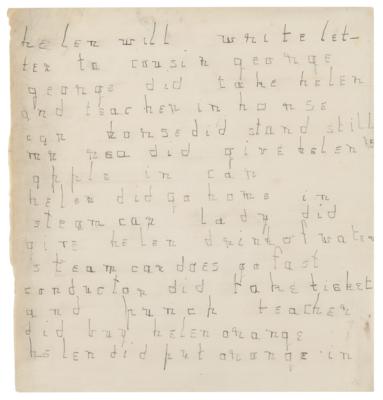 helen will write let-
ter to cousin george
george did take helen
and teacher in horse
car horse did stand still
mr neo did give helen
apple in car
helen did go home in
steam car lady did
give helen drink of water
steam car does go fast
conductor did take ticket
and punch teacher
did buy helen orange
helen did put orange in